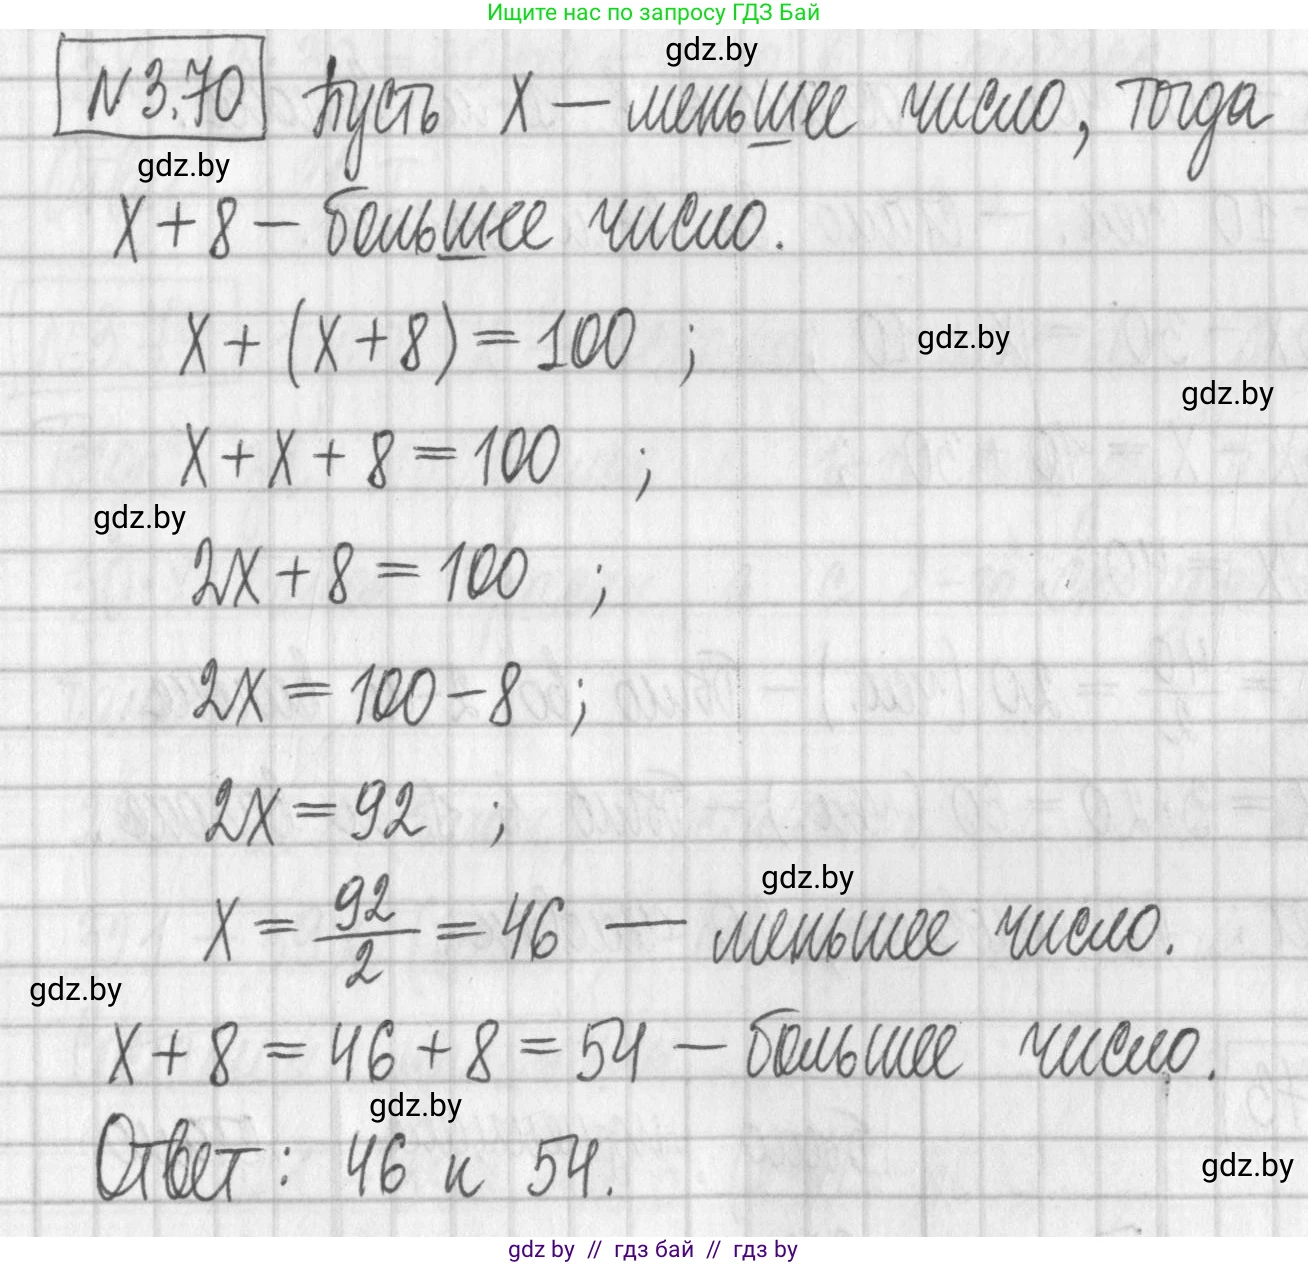 Ищите нас по запросу ГДЗ Бай
gdz.by
№3.70 Пусть x — меньшее число, тогда
gdz.by
x + 8 — большее число.
x + (x + 8) = 100 ;
gdz.by
gdz.by
x + x + 8 = 100 ;
gdz.by
2x + 8 = 100 ;
2x = 100 - 8 ;
2x = 92 ;
gdz.by
x = 92/2 = 46 — меньшее число.
gdz.by
x + 8 = 46 + 8 = 54 — большее число.
gdz.by
Ответ: 46 и 54.
gdz.by
gdz by // гдз бай // гдз by